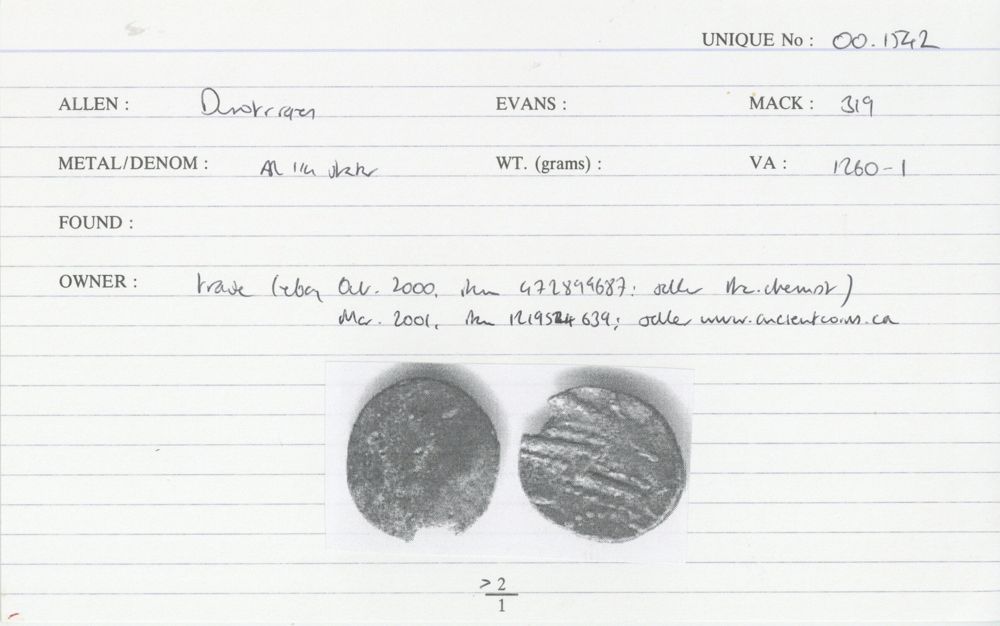 UNIQUE No : 00.1542
ALLEN : Durotriges EVANS : MACK : 319
METAL/DENOM : AR 1/4 stater WT. (grams) : VA : 1260-1
FOUND :
OWNER : trade (ebay Oct. 2000, item 472899687: seller the.chemist)
Mar. 2001, item 1219524639; seller www.ancientcoins.ca
> 2
1